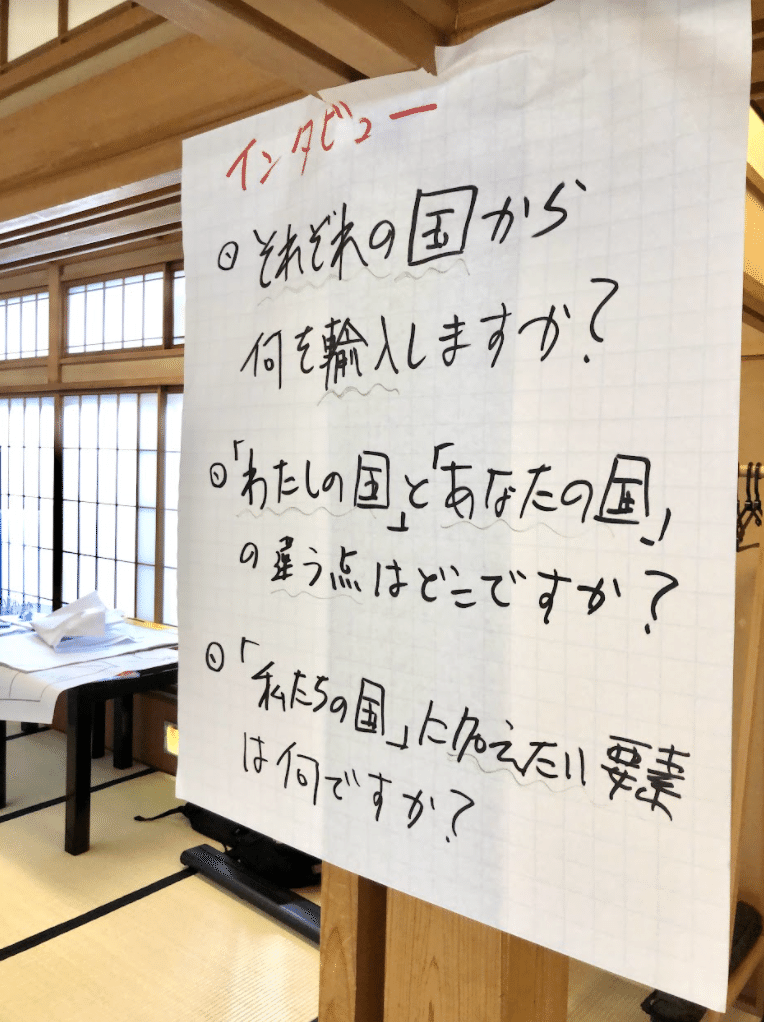 インタビュー
⊙それぞれの国から
何を輸入しますか?
⊙「わたしの国」と「あなたの国」
の違う点はどこですか?
⊙「私たちの国」に加えたい要素
は何ですか?